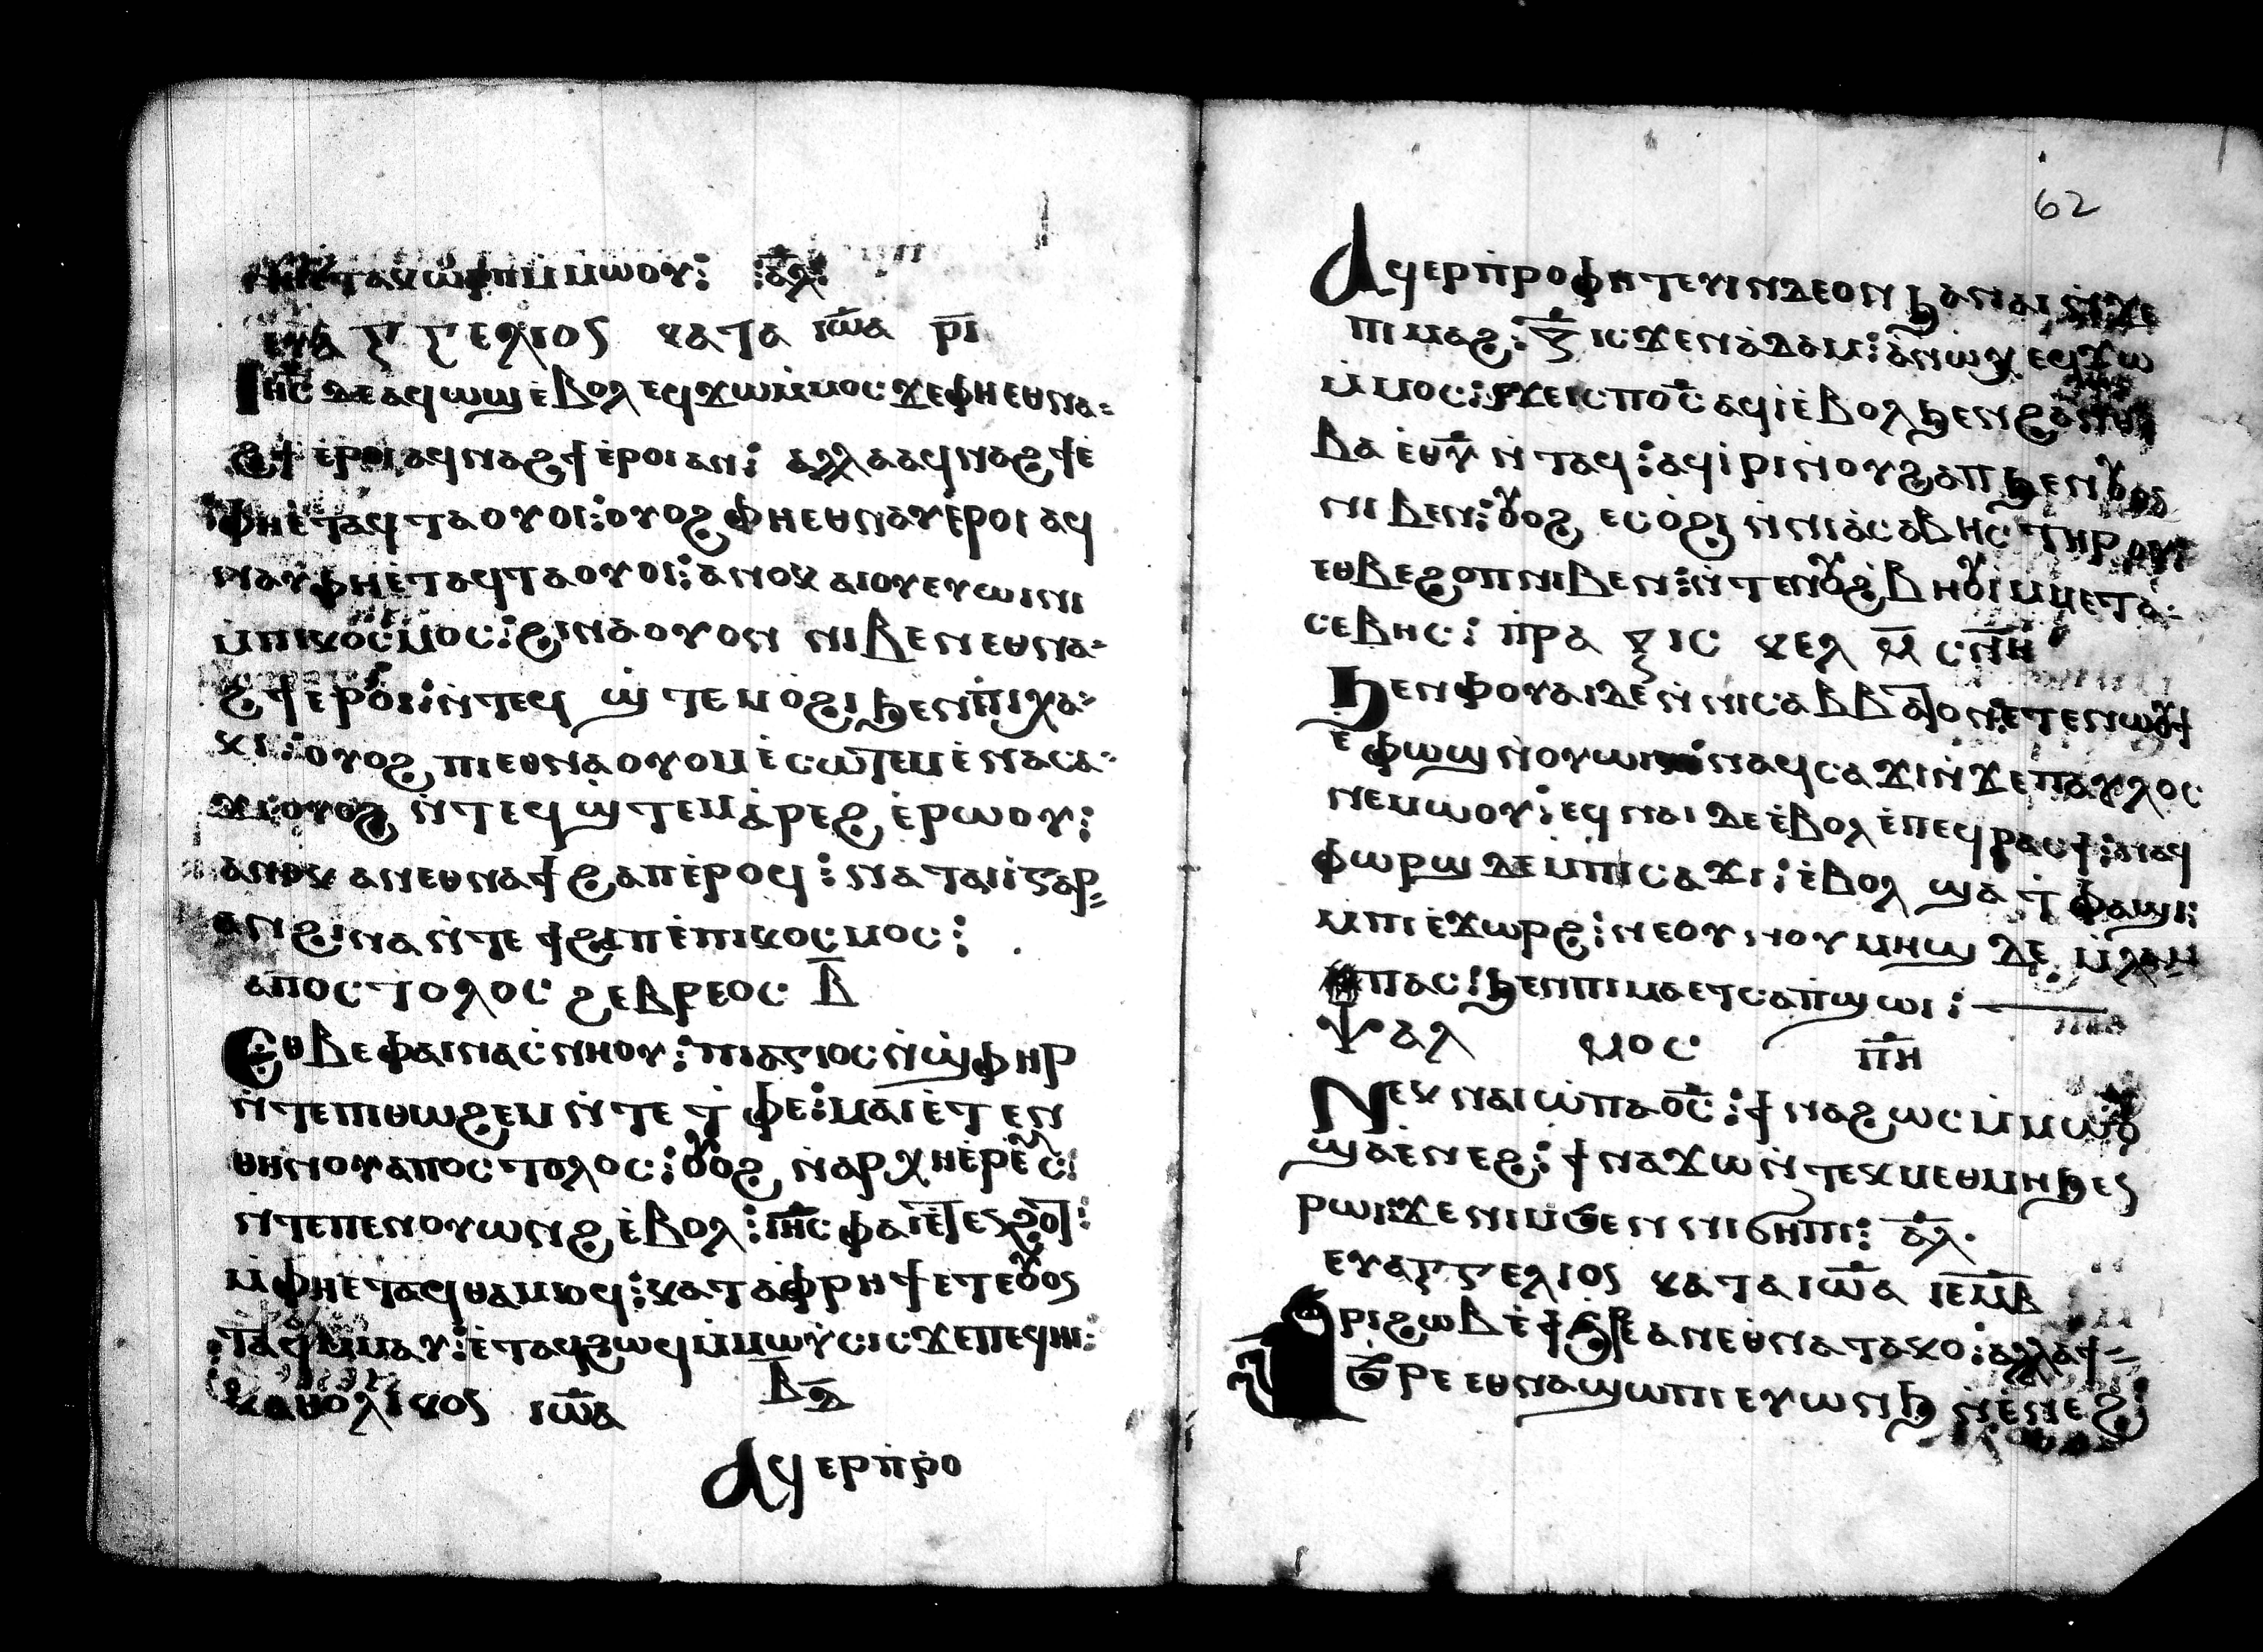 ⲛⲏⲉⲧⲁⲕⲱⲣⲡ ⲙⲙⲱⲟⲩ: ⲁⲗ:
ⲉⲩⲁⲅⲅⲉⲗⲓⲟⲥ ⲕⲁⲧⲁ ⲓⲱ̅ⲁ ⲣ̅ⲓ
Ⲓⲏ̅ⲥ ⲇⲉ ⲁϥⲱϣ ⲉ̀ⲃⲟⲗ ⲉϥϫⲱ ⲙ̀ⲙⲟⲥ ϫⲉ ⲫⲏ ⲉⲑⲛⲁ=
ϩϯ ⲉ̀ⲣⲟⲓ ⲁϥⲛⲁϩϯ ⲉ̀ⲣⲟⲓ ⲁⲛ: ⲁⲗⲗⲁ ⲁϥⲛⲁϩϯ ⲉ̀
ⲫⲏ ⲉ̀ⲧⲁϥⲧⲁⲟⲩⲟⲓ: ⲟⲩⲟϩ ⲫⲏ ⲉⲑⲛⲁⲩ ⲉ̀ⲣⲟⲓ ⲁϥ
ⲛⲁⲩ ⲫⲏ ⲉ̀ⲧⲁϥⲧⲁⲟⲩⲟⲓ: ⲁⲛⲟⲕ ⲁⲓⲟⲩⲉⲩⲱⲓⲛⲓ
ⲙ̀ⲡⲓⲕⲟⲥⲙⲟⲥ: ϩⲓⲛⲁ ⲟⲩⲟⲛ ⲛⲓⲃⲉⲛ ⲉⲑⲛⲁ=
ϩϯ ⲉ̀ⲣⲟⲓ: ⲛ̀ⲧⲉϥ ϣ̀ⲧⲉⲙⲟ̀ϩⲓ ϧⲉⲛ ⲡ̀ⲓⲭⲁ=
ⲕⲓ: ⲟⲩⲟϩ ⲡⲓⲉⲑⲛⲁⲟⲩⲟⲙ ⲉ̀ⲥⲱⲧⲉⲙ ⲉ̀ⲛⲁⲥⲁ=
ϫⲓ ⲟⲩⲟϩ ⲛ̀ⲧⲉϥ ϣ̀ⲧⲉⲙⲁ̀ⲣⲉϩ ⲉ̀ⲣⲱⲟⲩ:
ⲁⲛⲟⲕ ⲁⲛ ⲉⲑⲛⲁϯϩⲁⲡ ⲉ̀ⲣⲟϥ: ⲛⲁⲧⲁⲓⲓ̀ ⲅⲁⲣ=
ⲁⲛ ϩⲓⲛⲁ ⲛ̀ⲧⲉ ϯϩⲁⲡ ⲉ̀ⲡⲓⲕⲟⲥⲙⲟⲥ:
ⲁⲡⲟⲥⲧⲟⲗⲟⲥ ϩⲉⲃⲣⲉⲟⲥ ⲃ̅
Ⲉⲑⲃⲉ ⲫⲁⲓ ⲛⲁⲥ̀ⲛⲏⲟⲩ: ⲡⲓⲁⲅⲓⲟⲥ ⲛ̀ϣ̀ⲫⲏⲣ
ⲛ̀ⲧⲉ ⲡⲓⲑⲱϩⲉⲙ ⲛ̀ⲧⲉ ⲧ̀ⲫⲉ: ⲙⲁⲓⲉ̀ⲧⲉⲛ
ⲑⲏⲛⲟⲩ ⲁⲡⲟⲥⲧⲟⲗⲟⲥ: ⲟⲩⲟϩ ⲛ̀ⲁⲣⲭⲏⲉ̀ⲣⲉⲩⲥ:
ⲛ̀ⲧⲉ ⲡⲉⲛⲟⲩⲱⲛϩ ⲉ̀ⲃⲟⲗ: ⲓⲏ̅ⲥ ⲫⲁⲓ ⲉ̀ⲧⲉϩⲟⲧ:
ⲙ̀ⲫⲏ ⲉⲧⲁϥⲑⲁⲙⲓⲟϥ: ⲕⲁⲧⲁ ⲫⲣⲏϯ ⲉⲧⲉ ⲟⲩⲟⲥ
ⲧⲁϥ ⲙ̀ⲙⲁⲩ: ⲉ̀ⲧⲁϥϩⲱϥ ⲙ̀ⲙⲱⲩ̀ⲥⲓⲥ ϫⲉ ⲡⲉϥⲏⲓ:
ⲕⲁⲑⲟⲗⲓⲕⲟⲥ ⲓⲱ̅ⲁ ⲃ̅ⲇ̅
Ⲁϥⲉⲣⲡ̀ⲣⲟ
62
Ⲁϥⲉⲣⲡ̀ⲣⲟⲫⲏⲧⲉⲩⲓⲛ ⲇⲉ ⲟⲛ ϧⲁ ⲛⲁⲓ ⲛ̀ϫⲉ
ⲡⲓⲙⲁϩ: ⲍ̅ ⲓⲥϫⲉⲛ ⲁ̀ⲇⲁⲙ: ⲁ̀ⲛⲱⲭ ⲉϥϫⲱ
ⲙ̀ⲙⲟⲥ: ϫⲉ ⲓⲥ ⲡⲟ̅ⲥ ⲁϥⲓ̀ ⲉ̀ⲃⲟⲗ ϧⲉⲛ ϩⲁⲛⲑ
ⲃⲁ ⲉ̀ⲑⲩ̅ ⲛ̀ⲧⲁϥ: ⲁϥⲓ̀ⲣⲓ ⲛ̀ⲟⲩϩⲁⲡ ϧⲉⲛ ⲟⲩⲟⲛ
ⲛⲓⲃⲉⲛ: ⲟⲩⲟϩ ⲉⲥⲟ̀ϩⲓ ⲛ̀ⲛⲓⲁ̀ⲥⲁⲃⲏⲥ ⲧⲏⲣⲟⲩ:
ⲉⲑⲃⲉ ϩⲟⲡ ⲛⲓⲃⲉⲛ: ⲛ̀ⲧⲉ ⲛⲟⲩϩⲃⲏⲟⲩⲓ̀ ⲙ̀ⲙⲉⲧⲁ=
ⲥⲉⲃⲏⲥ: ⲡ̀ⲣⲁⲝⲓⲥ ⲕⲉⲗ ⲙ̅ ⲥⲡ̅ⲏ
Ϧⲉⲛ ⲫⲟⲩⲁⲓ ⲇⲉ ⲛ̀ⲛⲓⲥⲁⲃⲃⲁⲧⲟⲛ: ⲉ̀ⲧⲉⲛⲱⲟⲩϯ
ⲉ̀ⲫⲱϣ ⲛ̀ⲟⲩⲱⲓⲕ ⲛⲁϥⲥⲁϫⲓ ⲛ̀ϫⲉ ⲡⲁⲩⲗⲟⲥ
ⲛⲉⲙⲱⲟⲩ: ⲉϥⲛⲁⲓ ⲇⲉ ⲉ̀ⲃⲟⲗ ⲉ̀ⲡⲉϥⲣⲁⲥϯ: ⲛⲁϥ
ⲫⲱⲣϣ ⲇⲉ ⲙ̀ⲡⲓⲥⲁϫⲓ: ⲉ̀ⲃⲟⲗ ϣⲁ ⲧ̀ⲫⲁϣⲓ:
ⲙ̀ⲡⲓⲉ̀ϫⲱⲣϩ: ⲛⲉ ⲟⲩⲛⲟⲩⲙⲏϣ ⲇⲉ ⲛ̀ⲗⲁⲙ
ⲡⲁⲥ: ϧⲉⲛ ⲡⲓⲙⲁ ⲉⲧⲥⲁⲡ̀ϣⲱⲓ:
Ⲯⲁⲗⲙⲟⲥ ⲡ̅ⲏ
Ⲛⲉⲕⲛⲁⲓ ⲱ̀ ⲡⲁⲟ̅ⲥ: ϯⲛⲁϩⲱⲥ ⲙ̀ⲙⲱⲟⲩ
ϣⲁ ⲉ̀ⲛⲉϩ: ϯⲛⲁϫⲱ ⲛ̀ⲧⲉⲕⲙⲉⲑⲙⲏϧⲉⲛ
ⲣⲱⲓ: ϫⲉⲛ ⲓⲙ ϭⲉⲛ ⲛⲓϭⲏⲡⲓ: ⲁ̅ⲗ.
ⲉⲩⲁⲅⲅⲉⲗⲓⲟⲥ ⲕⲁⲧⲁ ⲓⲱ̅ⲁ ⲓⲉⲙ̅ⲃ
Ⲁⲣⲓϩⲱⲃ ⲉ̀ϯϧⲣⲉ ⲁⲛ ⲉ̀ⲑⲛⲁⲧⲁⲕⲟ: ⲁⲗⲗⲁ ϯ=
ϧⲣⲉ ⲉⲑⲛⲁϣⲱⲡⲓ ⲉⲩⲱⲛϧ ⲛ̀ⲉⲛⲉϩ: